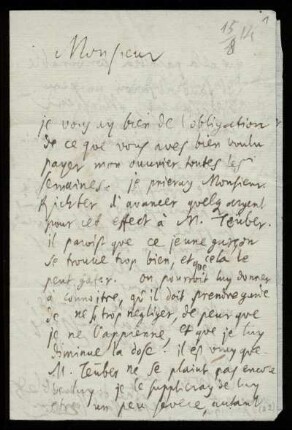 1
15/8 14
Monsieur
je vous ay bien de l'obligation
de ce que vous aves bien voulu
payer mon ouvrier toutes les
semaines. je prieray Monsieur
Richter d'avancer quelq argent
pour cet effect à M. Teuber.
il paroist que ce jeune garçon
se trouve trop bien, et que cela le
peut gater. on pourroit luy donner
à connoitre, qu'il doit prendre garde
de ne s trop negliger, de peur que
je ne l'apprenne, et que je luy
diminue la dose. il est vray que
M. Teuber ne se plaint pas encore
de luy. je le supplieray de luy
etre un peu severe, autant